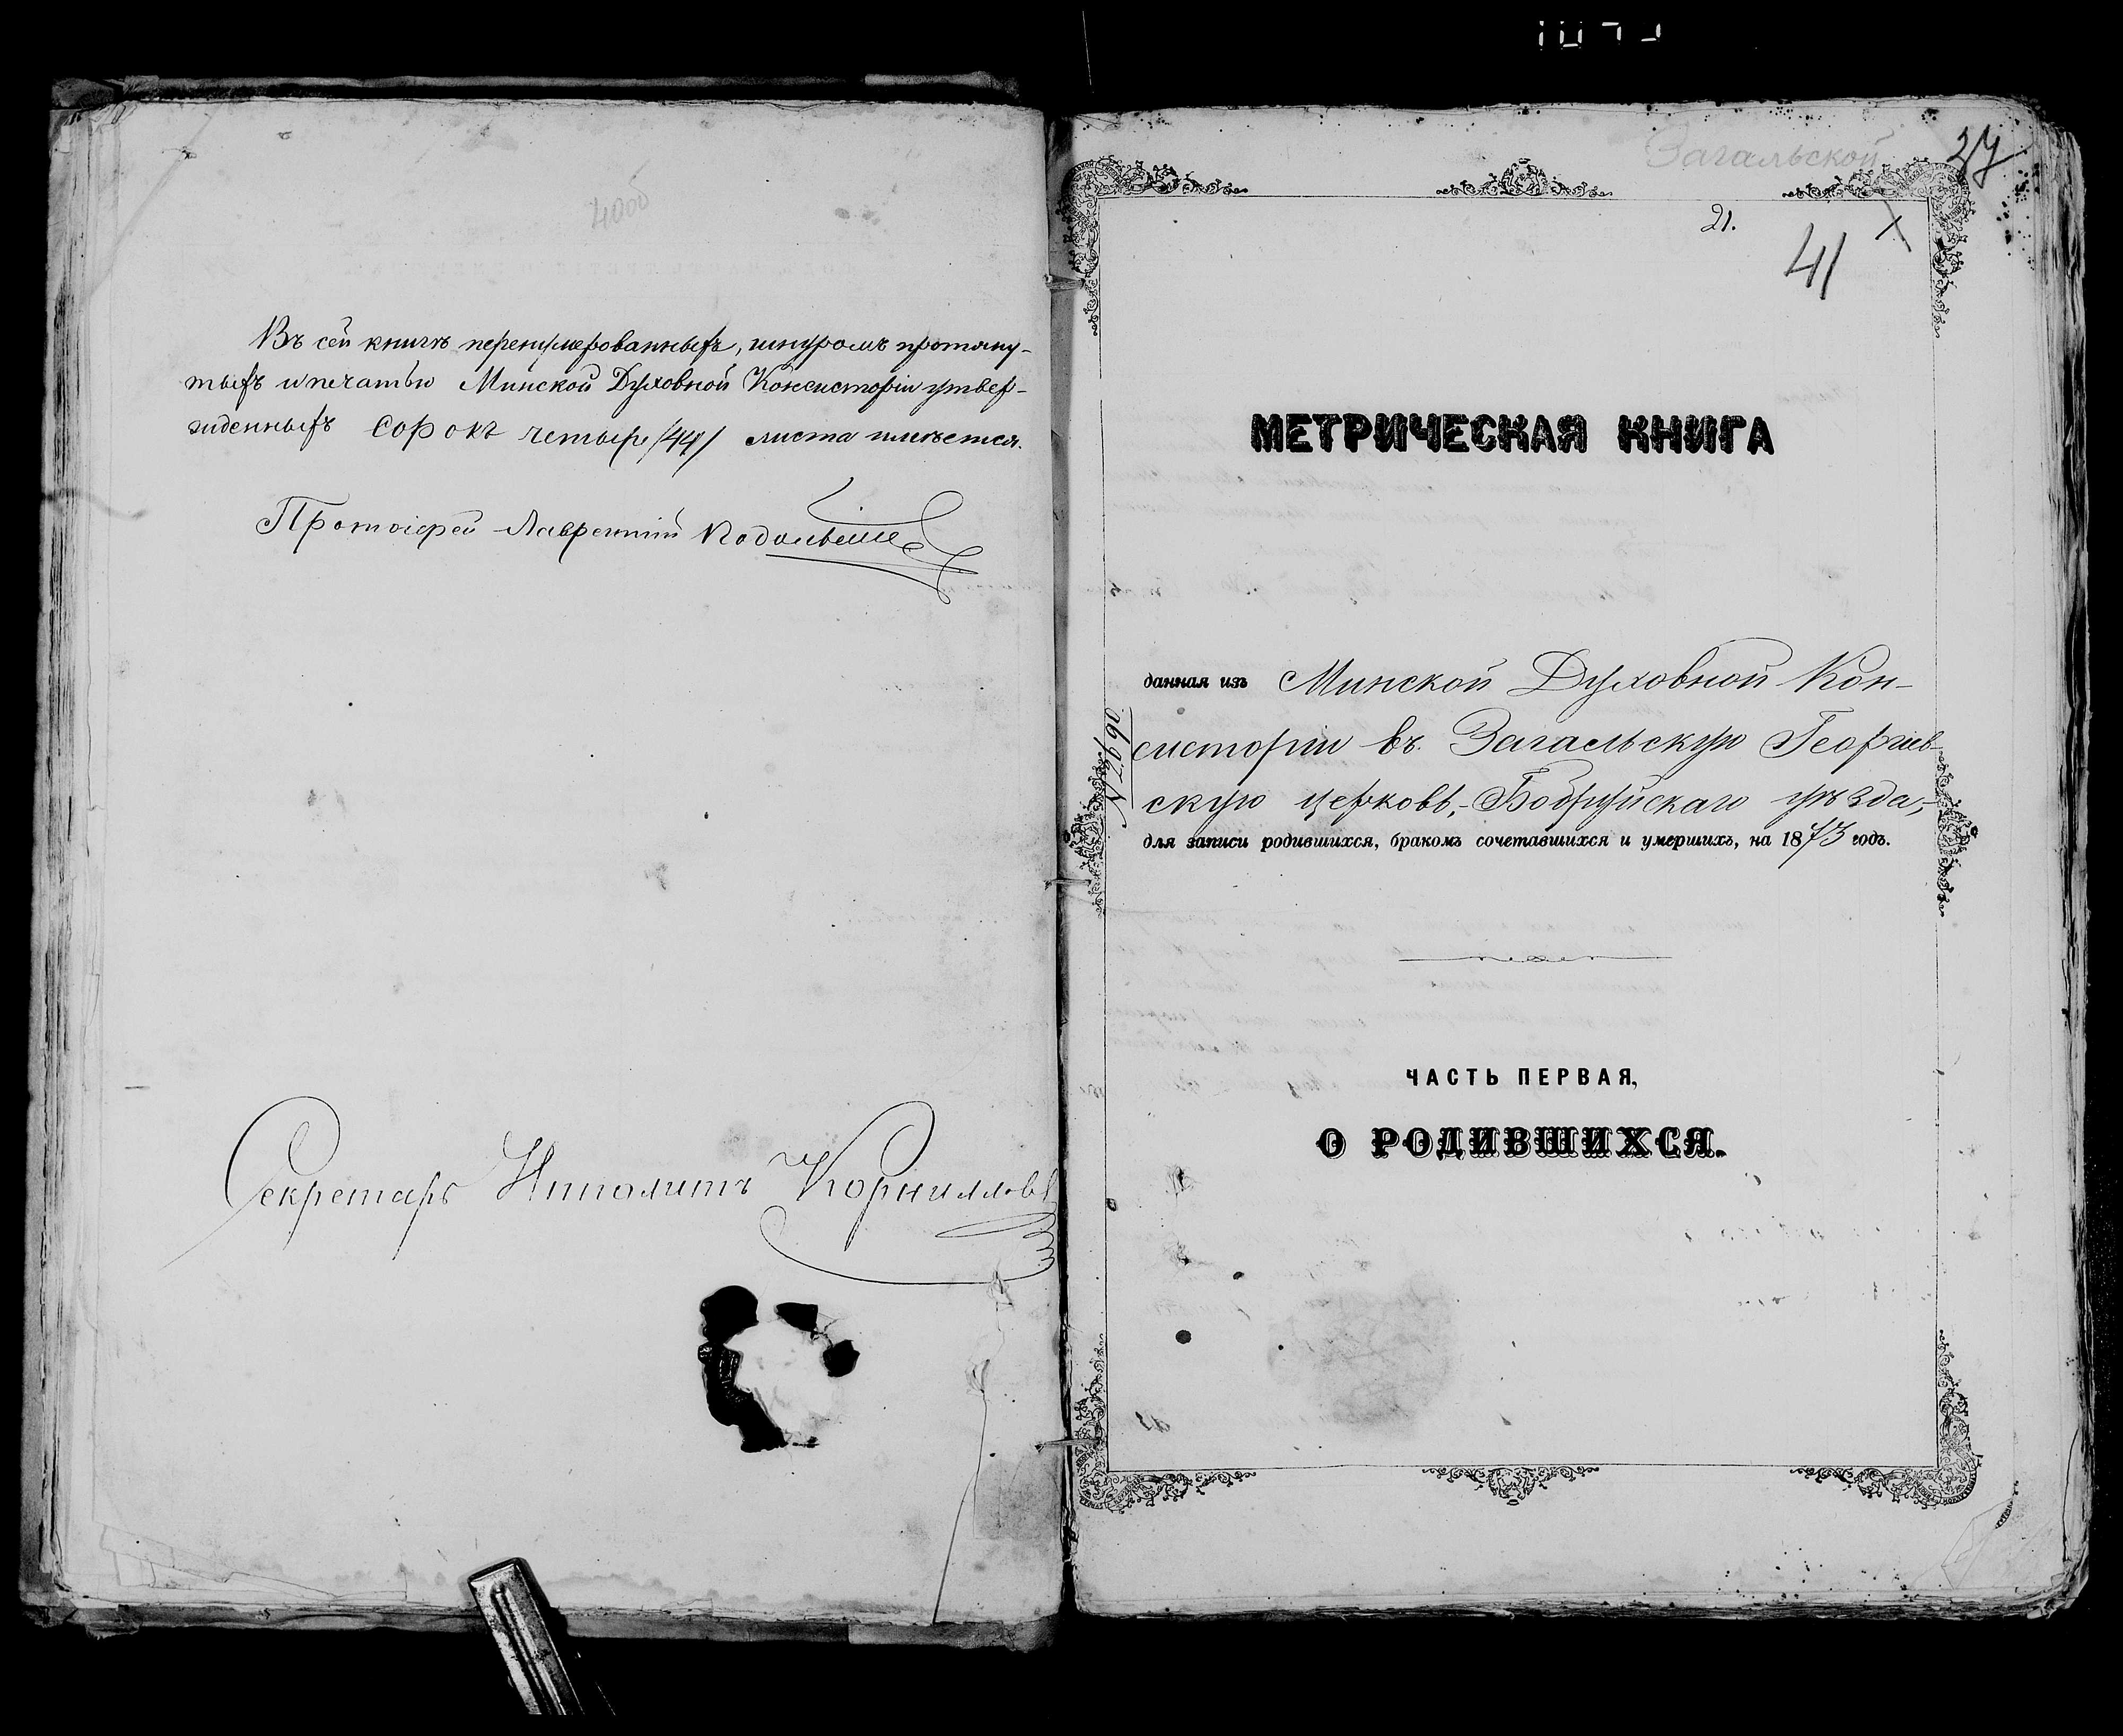 40об
Въ сей книгѣ перенумерованныхъ, шнуромъ протяну-
тыхъ и печатью Минской Духовной Консисторіи утвер-
жденныхъ сорокъ четыре /44/ листа имѣется.
Протоіерей Лаврентій
Секретарь Ипполитъ Корниловъ
Загальской
27
21.
41
МЕТРИЧЕСКАЯ КНИГА
данная изъ Минской Духовной Кон-
систоріи въ Загальскую Георгіев-
скую церковь, Бобруйскаго уѣзда,
для записи родившихся, бракомъ сочетавшихся и умершихъ, на 1873 годъ.
ЧАСТЬ ПЕРВАЯ,
О РОДИВШИХСЯ.